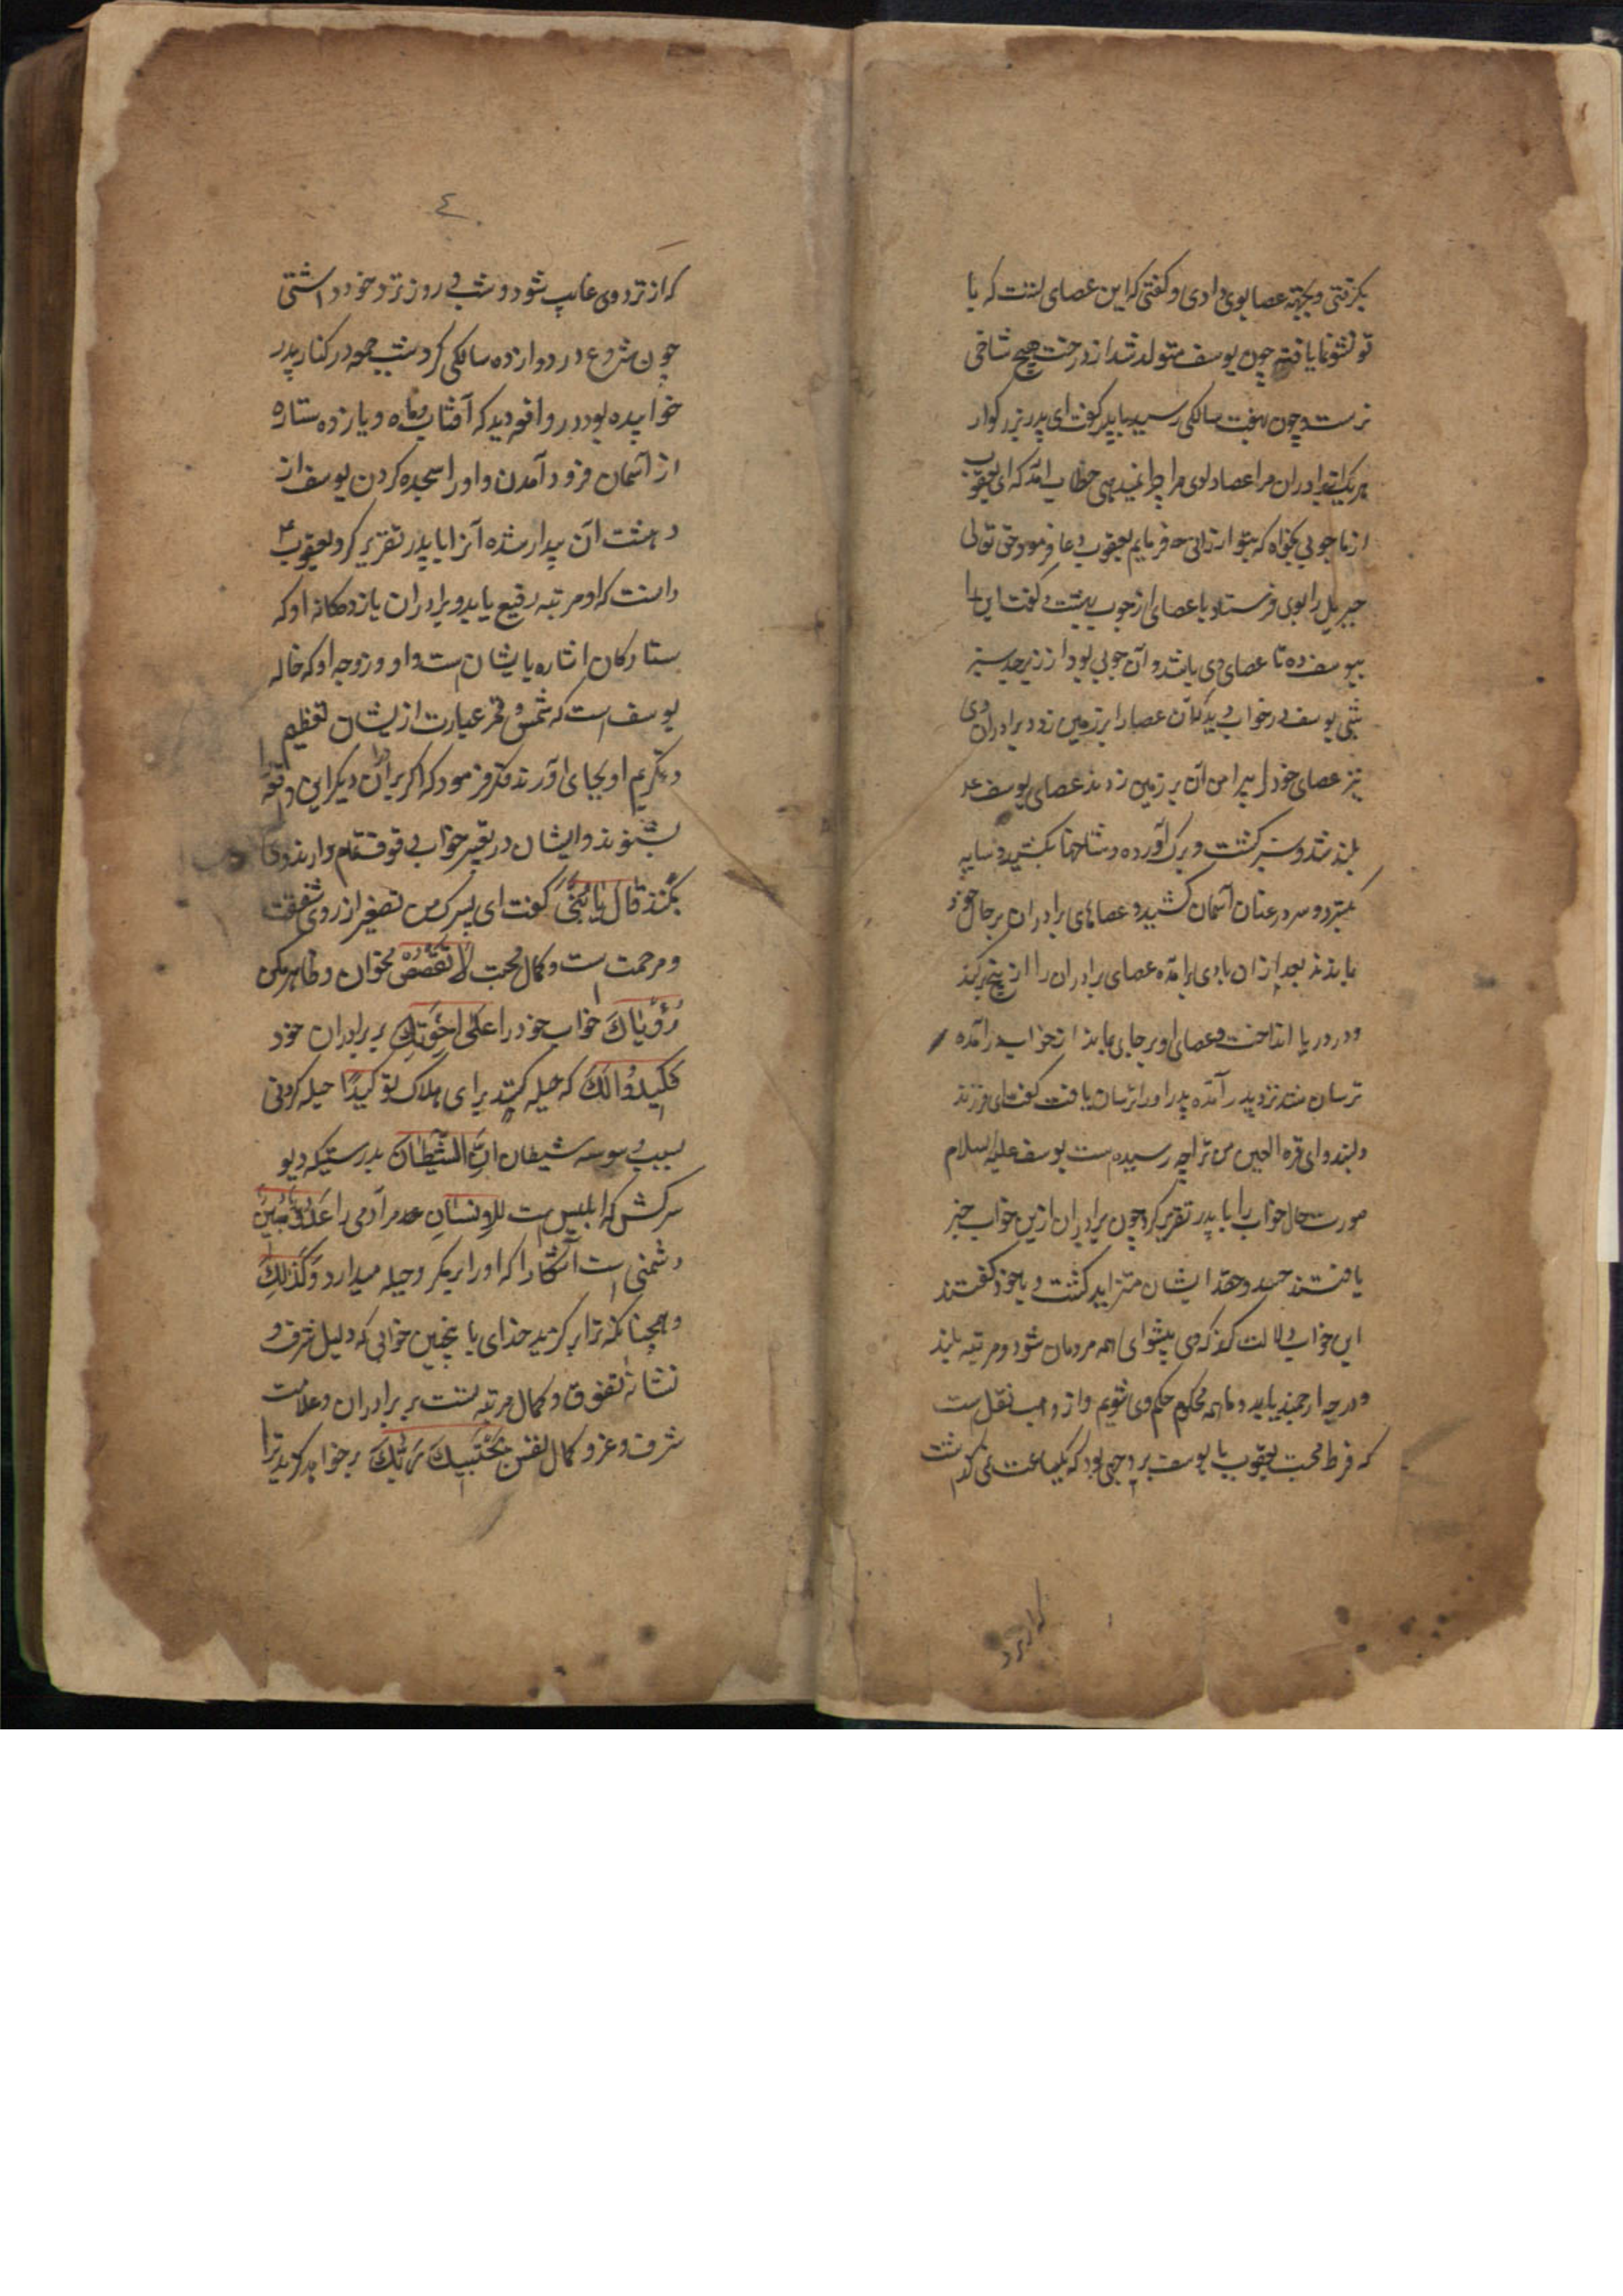 بگرفتی و بجهة عصا بوی دادی و گفتی که این عصای تست که با
تو نشو نما یافته چون یوسف متولد شد از درخت هیچ شاخی
نرست و چون بهفت سالکی رسید با پدر گفت ای پدر بزرگوار
هر یک برادران مرا عصا دادی مرا چرا نمیدهی خطاب آمد که ای یعقوب
از ما چوبی بخواه که بتو ارزانی فرمایم یعقوب دعا فرمود حق تعالی
جبریل را بوی فرستاد با عصای از چوب بهشت و گفت این را
بیوسف ده تا عصای وی باشد و آن چوبی بود از زبرجد سبز
شبی یوسف در خواب دید که آن عصا را بر زمین زد و برادران وی
نیز عصای خود را پیرامن آن بر زمین زدند عصای یوسف
بلند شد و سبز گشت و برگ آورده و شاخها بکشید و سایه
بگسترد و سر در عنان آسمان کشید و عصاهای برادران بر حال خود
ماندند بعد از آن بادی برآمده عصای برادران را از بیخ برکند
و در دریا انداخت و عصای او بر جای بماند از خواب درآمده
ترسان شد نزد پدر آمده پدر او را ترسان یافت گفت ای فرزند
دلبند و ای قره العین من ترا چه رسیده است یوسف علیه السلام
صورت حال خواب را با پدر تقریر کرد چون برادران ازین خواب خبر
یافتند حسد و حقد ایشان متزاید گشت و با خود گفتند
این خواب دلالت کند که وی پیشوای همه مردمان شود و مرتبه بلند
و درجه ارجمند یابد و ما همه محکوم حکم وی شویم و از وهب نقل ست
که فرط محبت یعقوب با یوسف بر وجهی بود که یکساعت نمی گذاشت
که از نزد وی
٤
که از نزد وی غایب شود و شب و روز نزد خود داشتی
چون شروع در دوازده سالکی کرد شب جمعه در کنار پدر
خوابیده بود در واقعه دید که آفتاب و ماه و یازده ستاره
از آسمان فرود آمدن و او را سجده کردن یوسف از
دهشت آن بیدار شده آنرا با پدر تقریر کرد یعقوب ع
دانست که او مرتبه رفیع یابد و برادران یازدهگانه او که
ستارکان اشاره بایشان ست و او و زوجه او که خاله
یوسف است که شمس و قمر عبارت از یشان تعظیم
و تکریم او بجای آورند فکر فرمود که اگر برادران دیگر این واقعه را
بشنوند و ایشان در تعبیر خواب وقوف تمام دارند
بکنند قَالَ يَا بُنَيَّ گفت ای پسرک من تصغیر از روی شفقت
و مرحمت ست و کمال محبت لَا تَقْصُصْ مخوان و ظاهر مکن
رُؤْيَاكَ خواب خود را عَلَى إِخْوَتِكَ بر برادران خود
فَيَكِيدُوا لَكَ که حیله کنند برای هلاک تو كَيْدًا حیله کردنی
بسبب وسوسه شیطان إِنَّ الشَّيْطَانَ بدرستیکه دیو
سرکش که ابلیس ست لِلْإِنْسَانِ مر آدمی را عَدُوٌّ مُبِينٌ
دشمنی است آشکارا که او را بر مکر و حیله میدارد وَكَذَلِكَ
و همچنانکه ترا برگزید خدای با چنین خوابی که دلیل شرف و
نشانه تفوق و کمال مرتبه تست بر برادران و علامت
شرف و عز و کمال نفس يَجْتَبِيكَ رَبُّكَ برخواهد گزید ترا